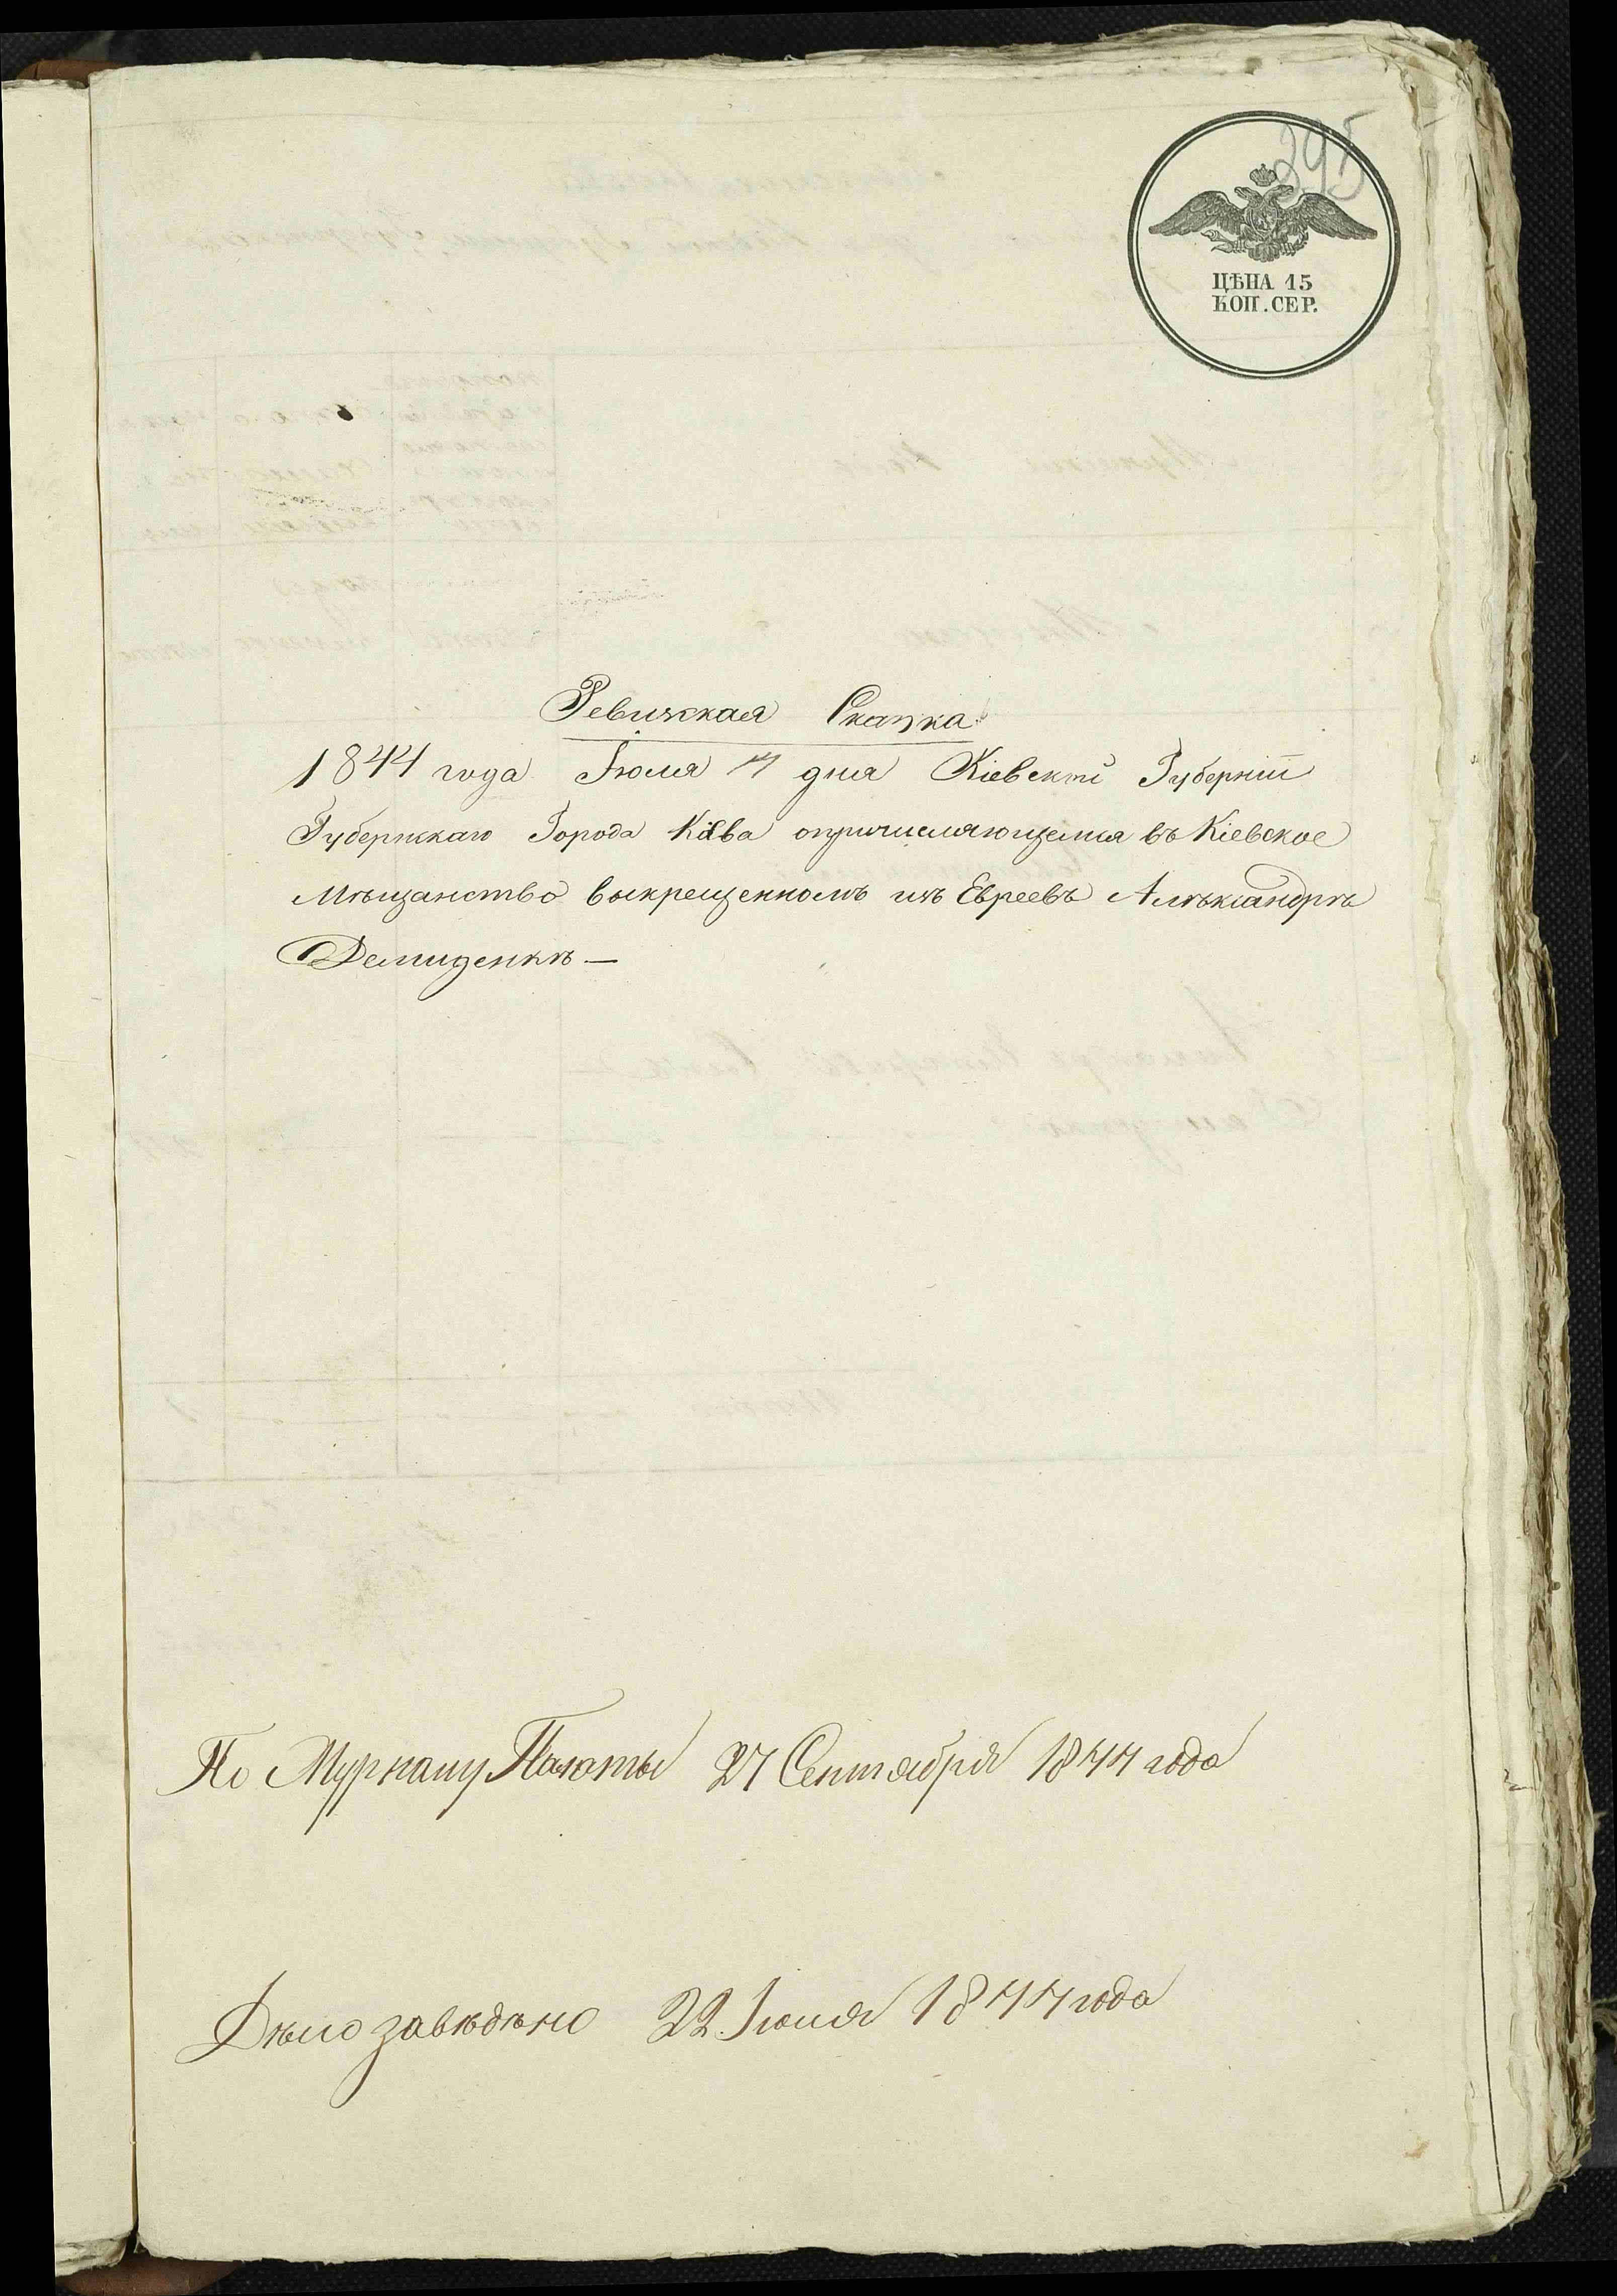 295
ЦѢНА 15
КОП. СЕР.
Ревизская Сказка
1844 года Іюля 17 дня Кіевской Губерніи
Губернскаго Города Кіева опричисляющемся въ Кіевское
Мѣщанство выкрещенномъ изъ Евреевъ Алѣксандрѣ
Демиденкѣ —
По Журналу Палаты 27 Сентября 1844 года
Дѣло завѣдѣно 22 Іюля 1844 года